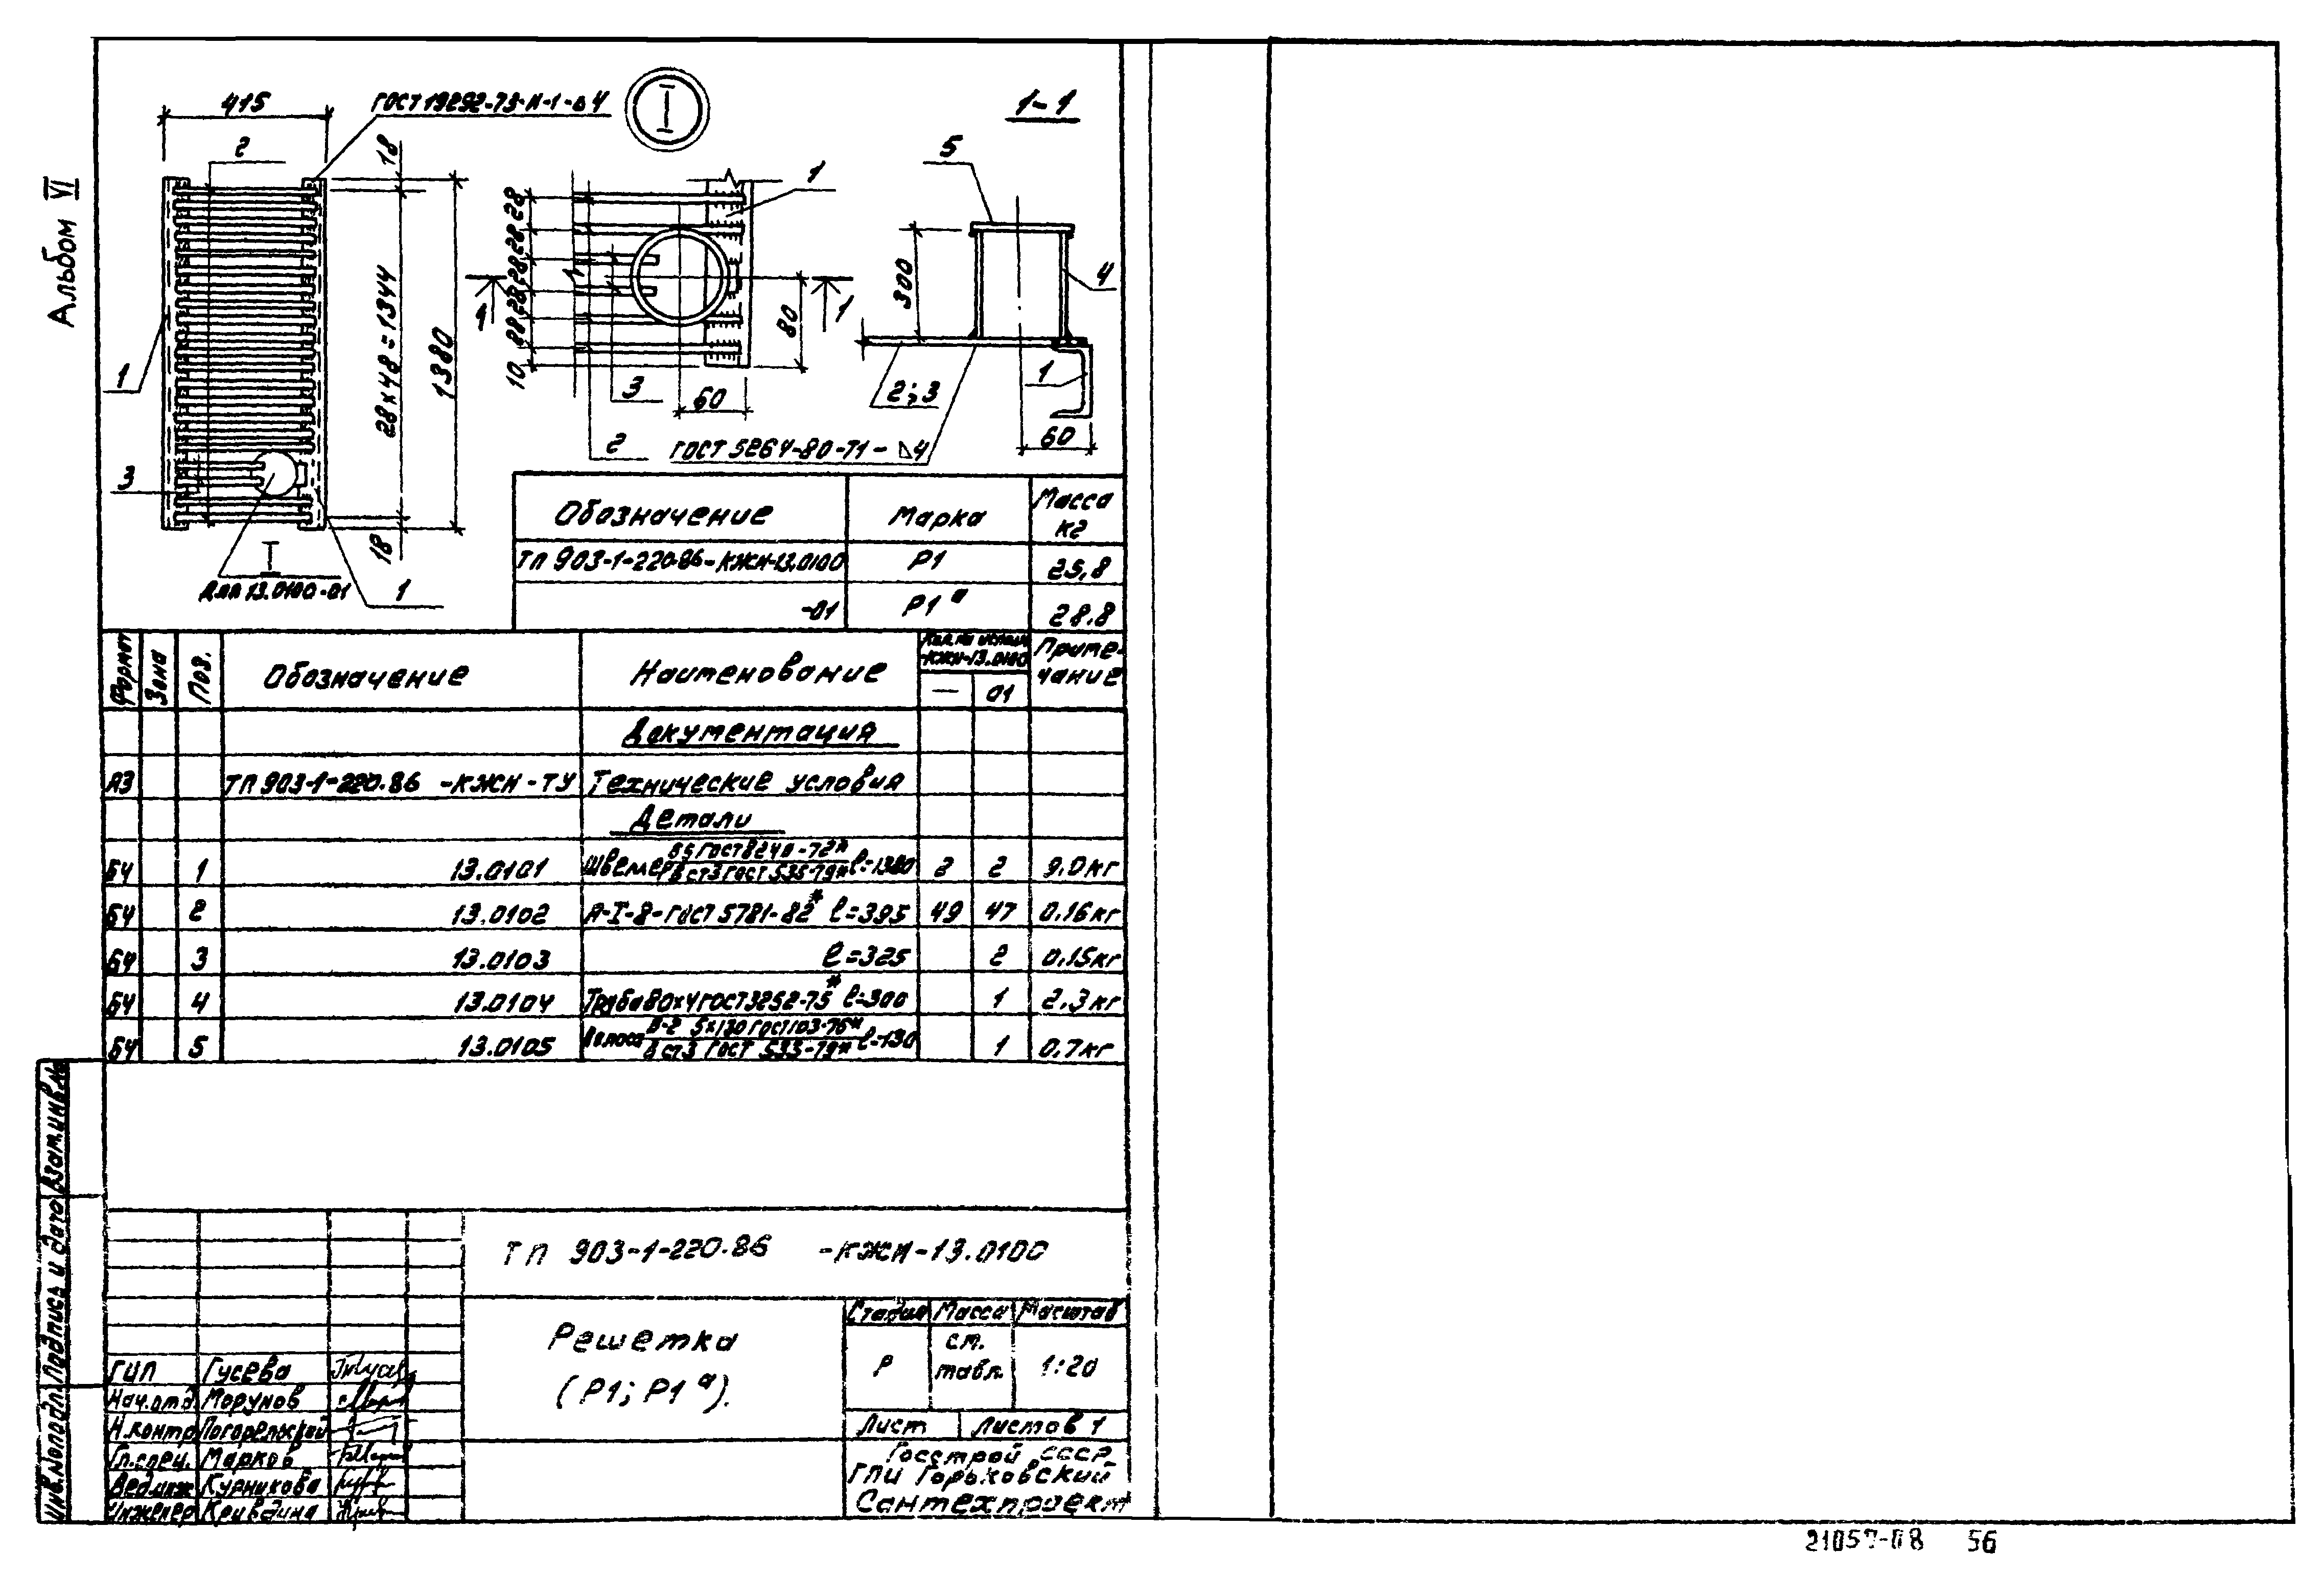 Альбом VI
415
ГОСТ 19292-73-Н-1-⊿4
I
1-1
2
18
28×48=1344
1380
18
1
3
I
Для 13.0100-01
1
28
28
28
28
28
10
1
1
1
80
60
3
2
ГОСТ 5264-80-Т1-⊿4
5
300
4
1
2;3
60
Обозначение Марка Масса кг
ТП 903-1-220.86-КЖИ-13.0100 Р1 25,8
-01 Р1а 28.8
Формат Зона Поз. Обозначение Наименование Кол. на исполн. -КЖИ-13.0100 Примечание
— 01
Документация
А3 ТП 903-1-220.86 -КЖИ-ТУ Технические условия
Детали
БЧ 1 13.0101 Швеллер 6.5 ГОСТ 8240-72* / В ст3 ГОСТ 535-79* ℓ=1380 2 2 9.0кг
БЧ 2 13.0102 А-I-8-ГОСТ 5781-82* ℓ=395 49 47 0,16кг
БЧ 3 13.0103 ℓ=325 2 0,15кг
БЧ 4 13.0104 Труба 80×4 ГОСТ 3262-75* ℓ=300 1 2,3кг
БЧ 5 13.0105 Полоса В-2 5×130 ГОСТ 103-76* / В ст3 ГОСТ 535-79* ℓ=130 1 0,7кг
Взам.инв.№
Подпись и дата
Инв.№подл.
ТП 903-1-220.86 -КЖИ-13.0100
Решетка
(Р1; Р1а).
Стадия Масса Масштаб
Р см. табл. 1:20
Лист Листов 1
Госстрой СССР
ГПИ Горьковский
Сантехпроект
ГИП Гусева
Нач.отд Морунов
Н.контр Погорельский
Гл.спец. Марков
Вед.инж Курникова
Инженер Кривдина
21057-08 56